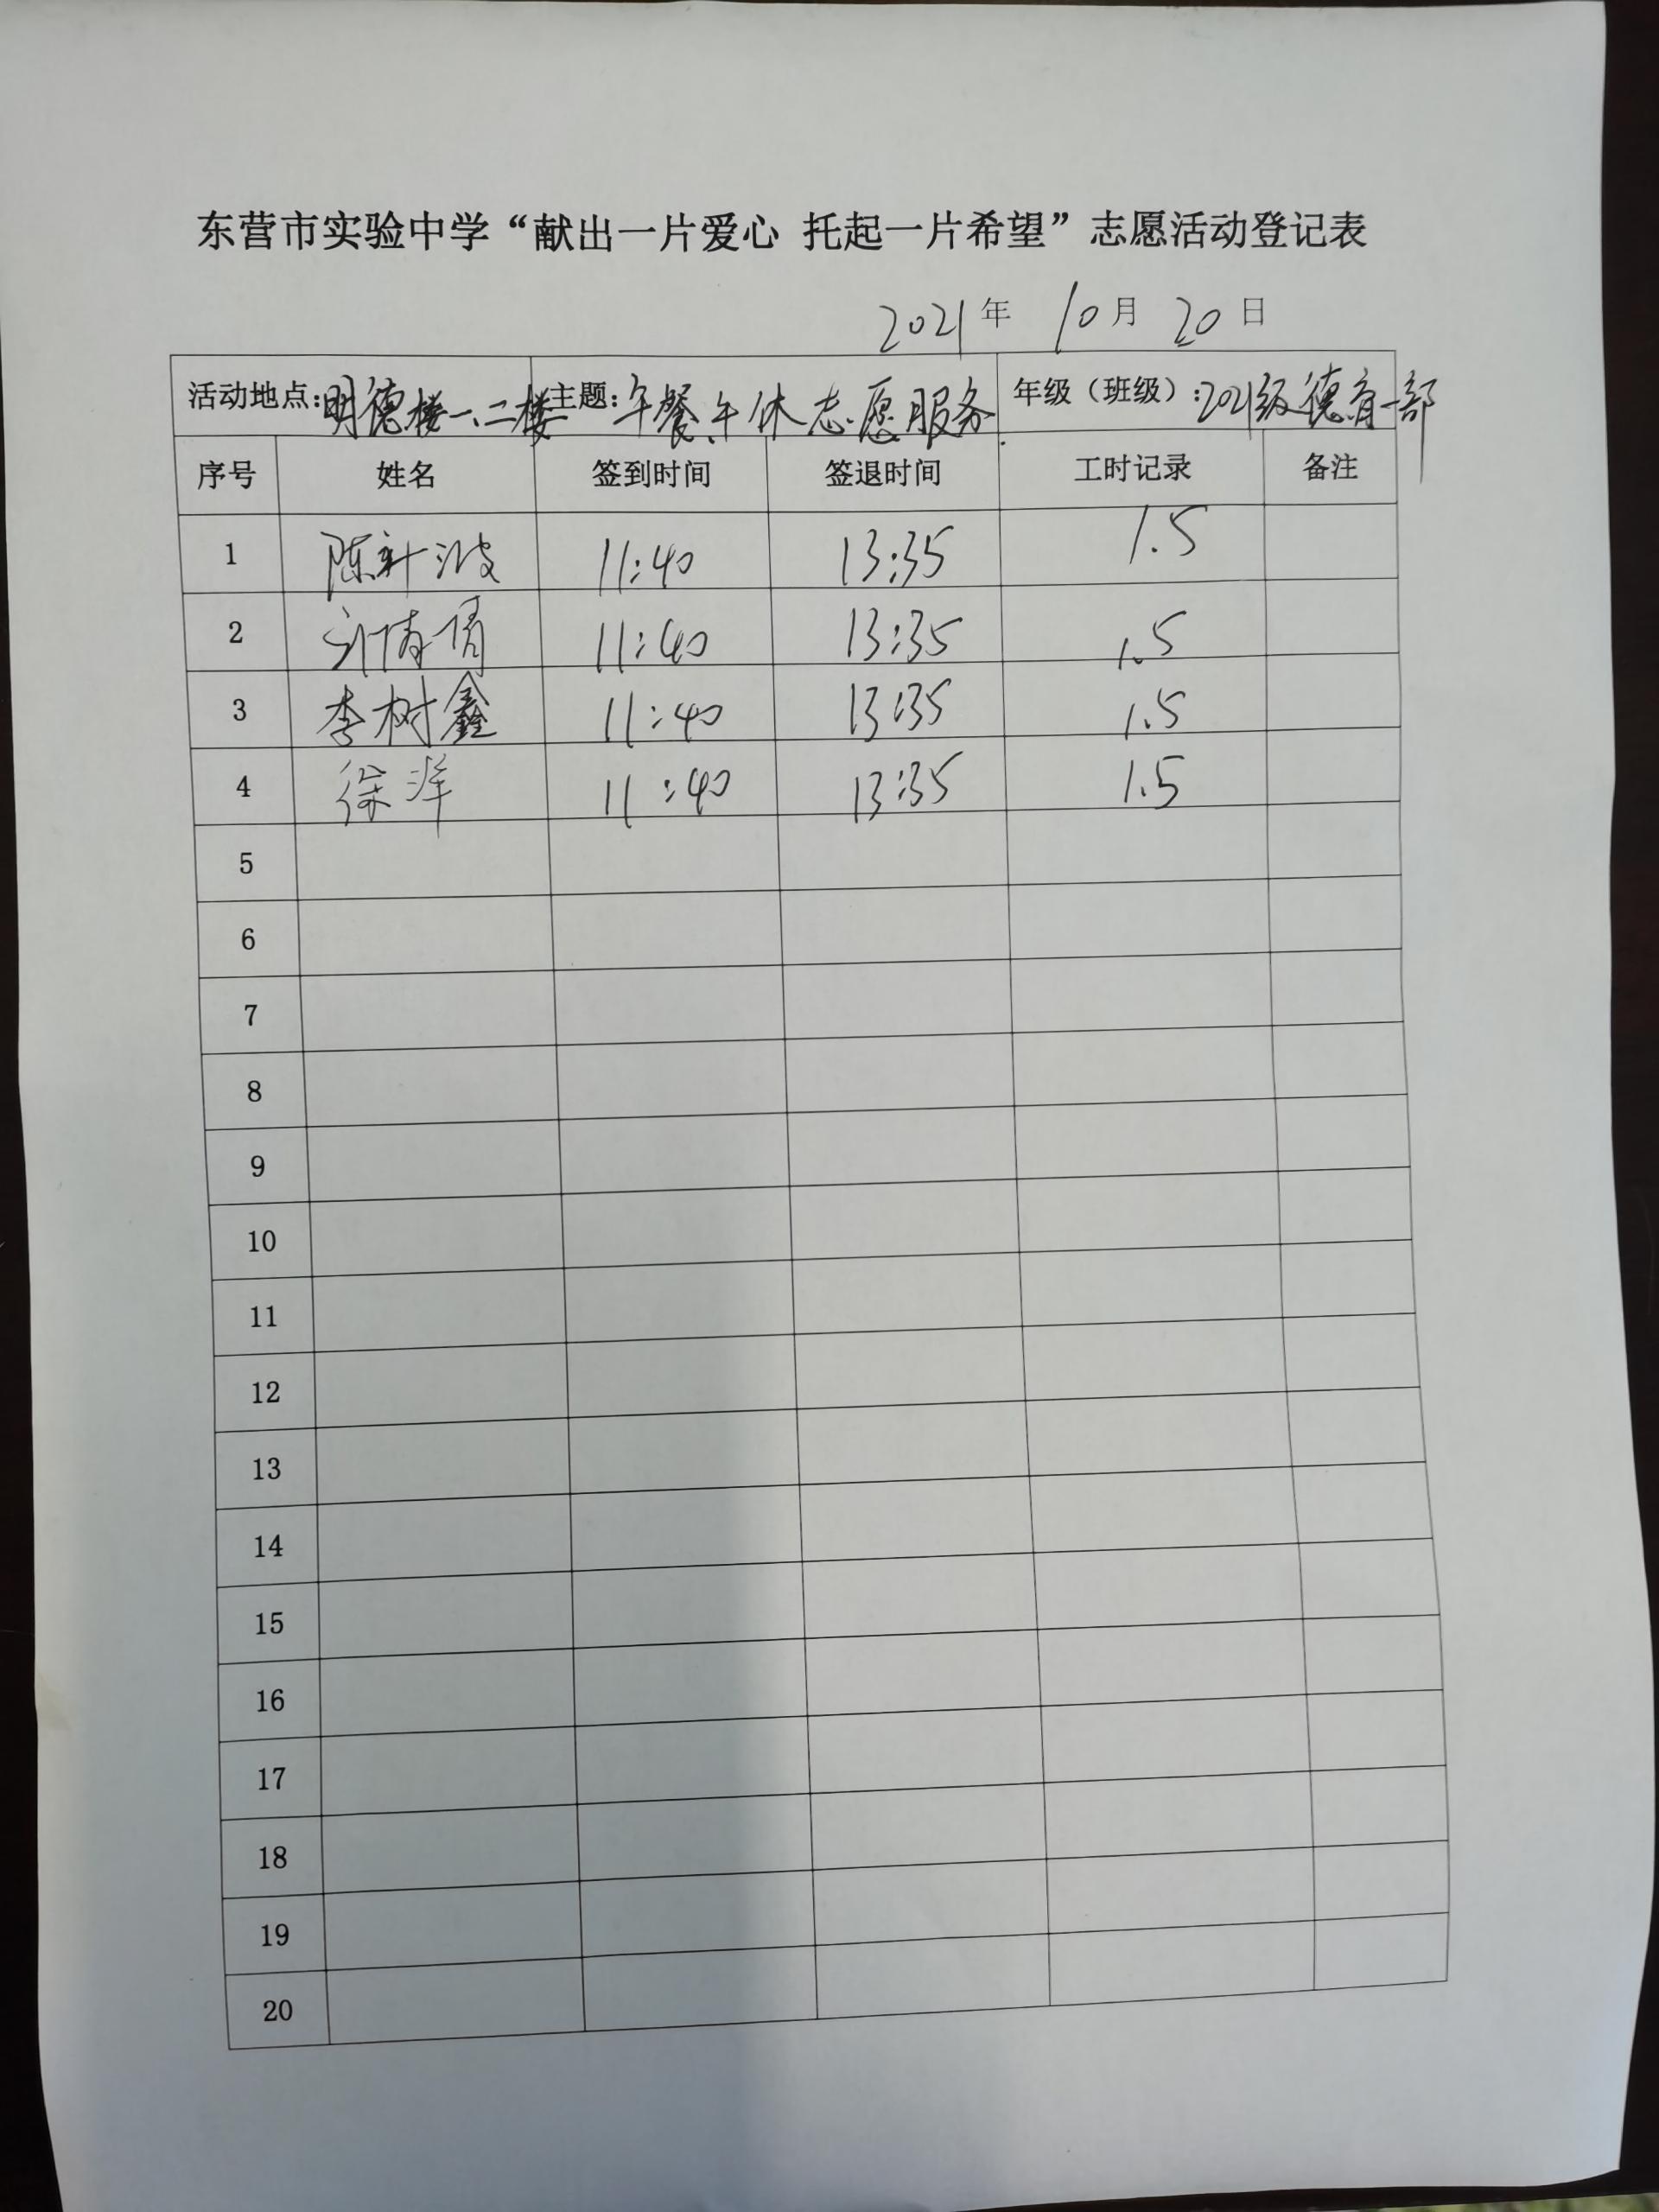 东营市实验中学“献出一片爱心 托起一片希望”志愿活动登记表
2021年 10月 20日
活动地点:明德楼一、二楼 主题:午餐、午休志愿服务 年级（班级）:2021级德育一部
序号 姓名 签到时间 签退时间 工时记录 备注
1 陈 波 11:40 13:35 1.5
2 刘倩倩 11:40 13:35 1.5
3 李树鑫 11:40 13:35 1.5
4 徐洋 11:40 13:35 1.5
5
6
7
8
9
10
11
12
13
14
15
16
17
18
19
20